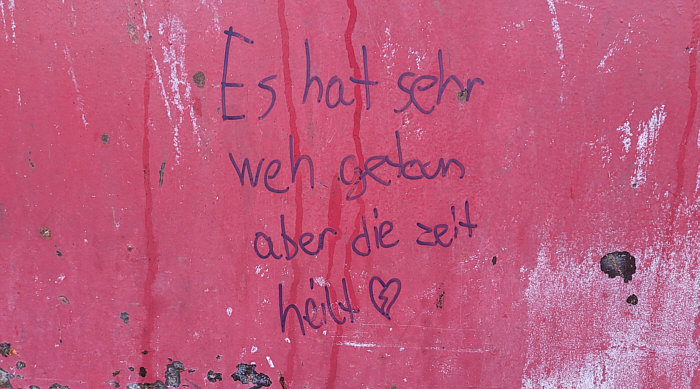 Es hat sehr
weh getan
aber die zeit
heilt